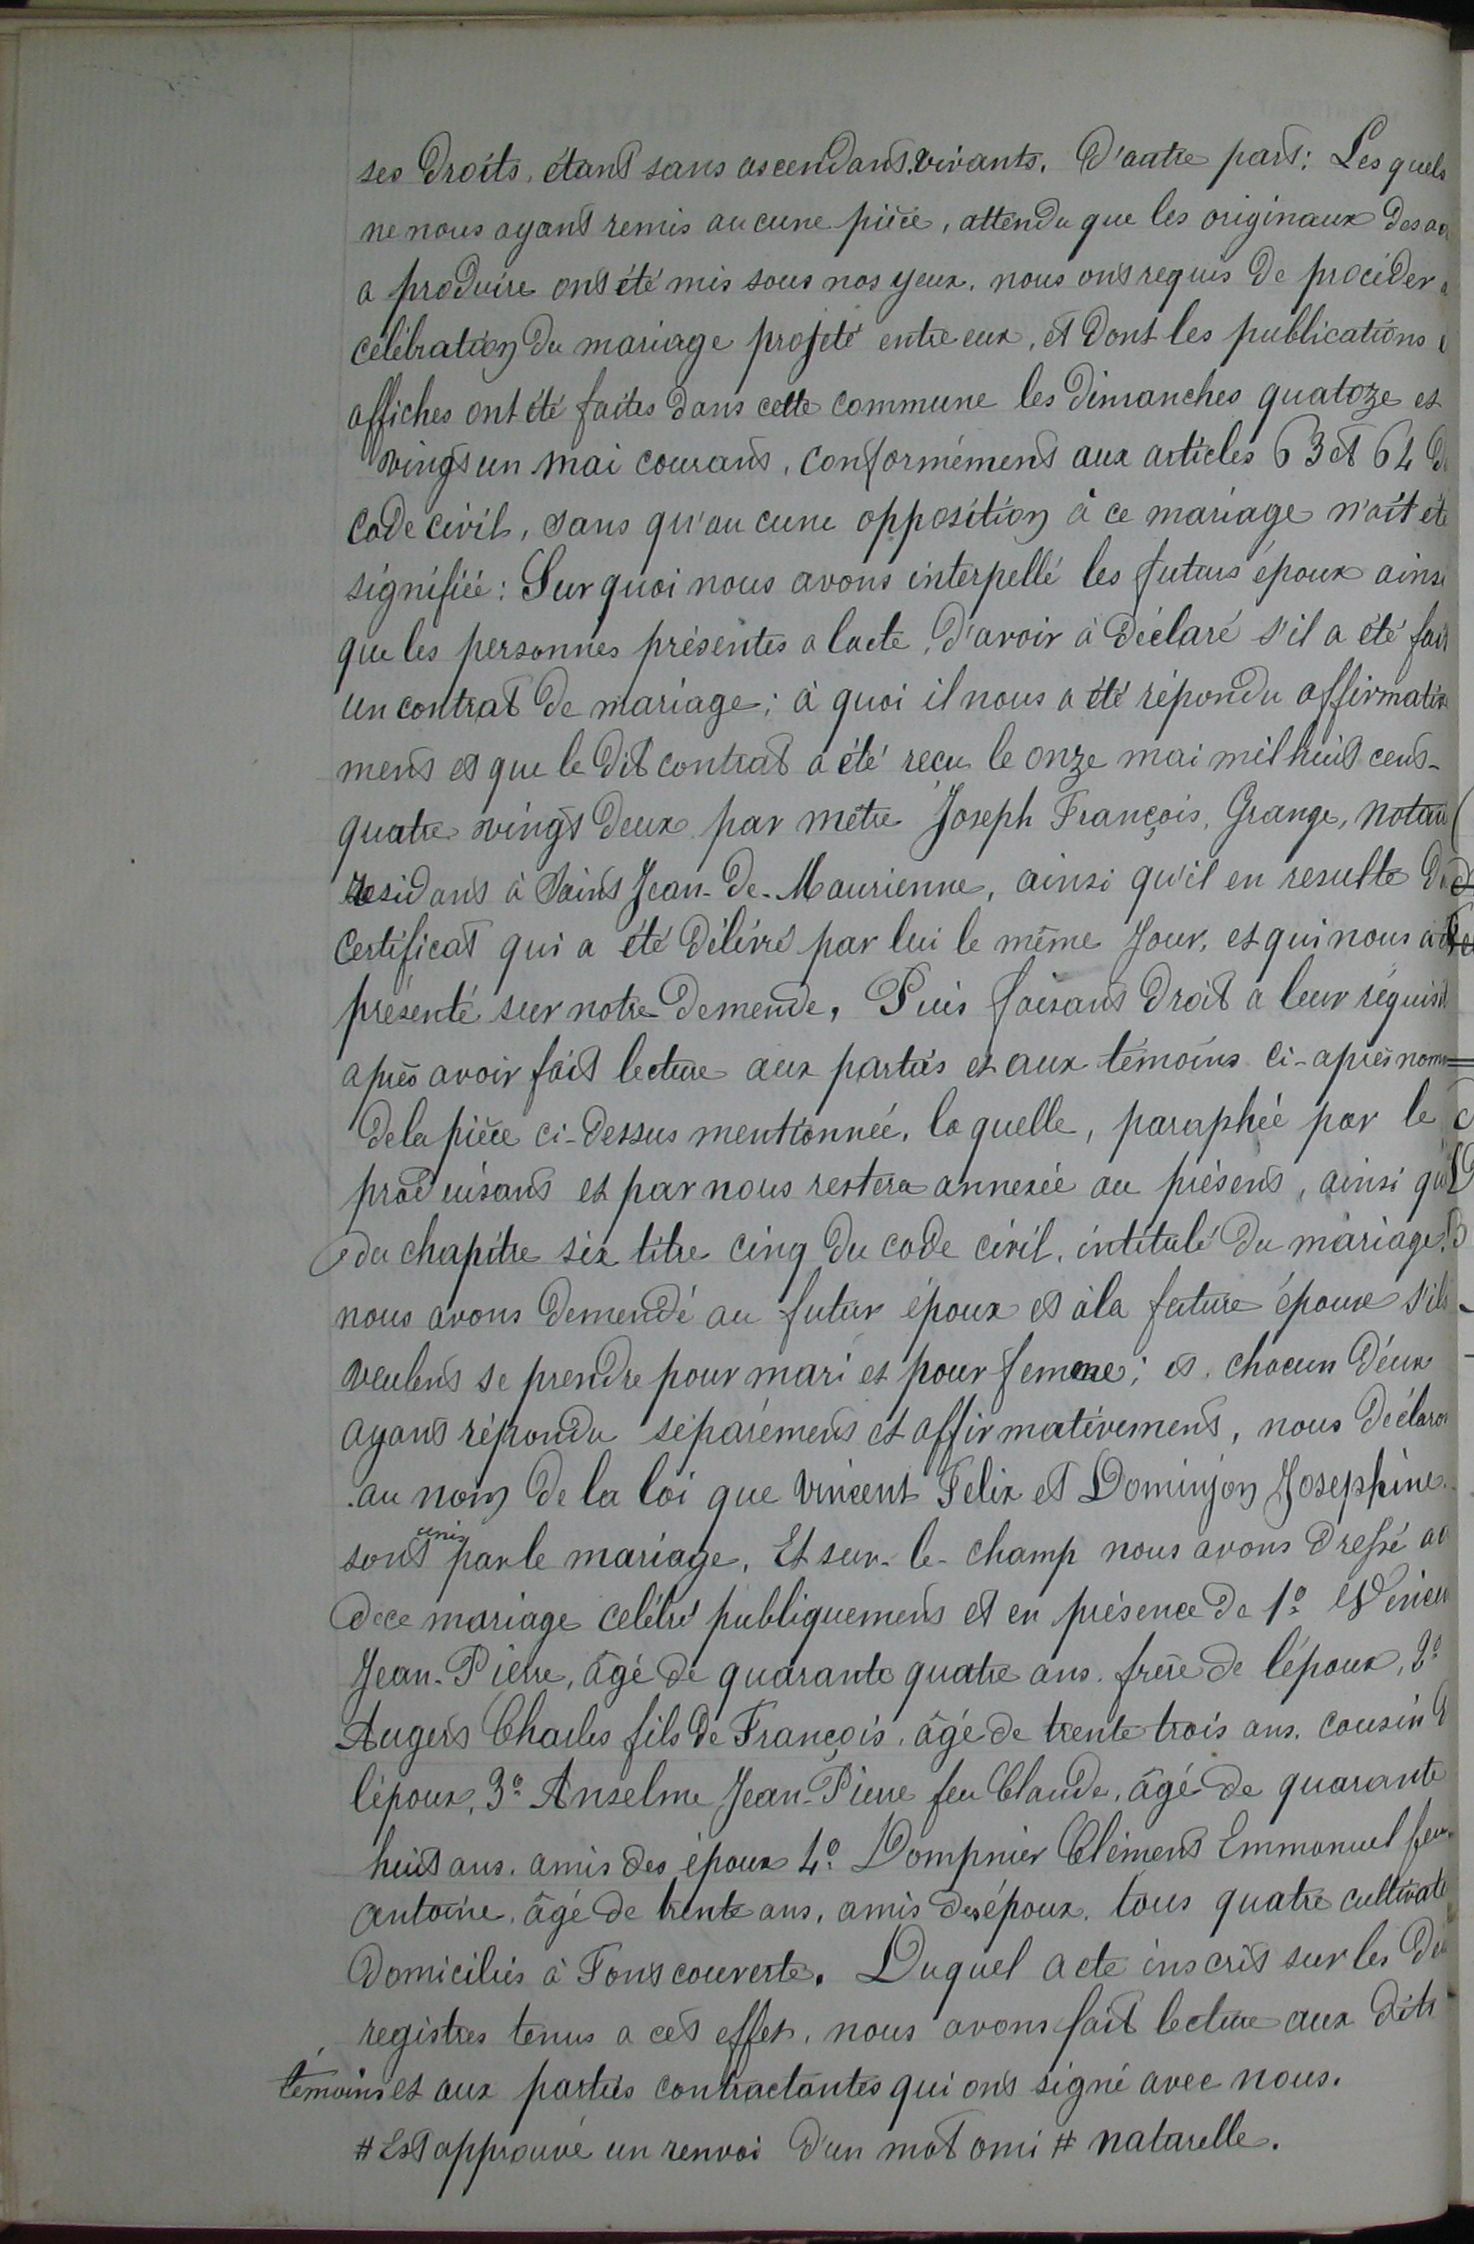 ses droits, étant sans ascendant vivants. D'autre part: Les quels
ne nous ayant remis aucune pièce, attendu que les originaux des
a produire ont été mis sous nos yeux, nous ont requis de procéder
célébration du mariage projeté entre eux, et dont les publications
affiches ont été faites dans cette commune les dimanches quatoze et
vingt un mai courant, conformément aux articles 63 et 64
code civil, sans qu'aucune opposition à ce mariage n'ait été
signifiée: Sur quoi nous avons interpellé les futurs époux ainsi
que les personnes présentes a lacte, d'avoir à déclaré s'il a été fait
un contrat de mariage; à quoi il nous a été répondu affirmative
ment et que le dit contrat a été recu le onze mai mil huit cent-
quatre vingt deux par metre Joseph François, Grange, notai
residant à Saint Jean-de-Maurienne, ainsi qu'il en resulte du
certificat qui a été délivré par lui le même jour, et qui nous a
présenté sur notre demende, Puis faisant droit a leur réquisit
après avoir fait lecture aux parties et aux témoins ci-après nom
de la pièce ci-dessus mentionnée, laquelle, paraphée par le
produisant et par nous restera annexée au présent, ainsi que
du chapitre six titre cinq du code civil, intitulé du mariage,
nous avons demendé au futur époux et à la future épouse s'ils
veulent se prendre pour mari et pour femme; et, chacun d'eux
ayant répondu séparément et affirmativement, nous déclaron
au nom de la loi que Vincent Felix et Dominjon Josephine
sont unis par le mariage, Et sur-le-champ nous avons dressé
de ce mariage célébré publiquement et en présence de 1º Vincen
Jean-Pierre, âgé de quarante quatre ans, frère de l'époux, 2º
Augert Charles fils de François, âgé de trente trois ans, cousin
l'époux, 3º Anselme Jean-Pierre feu Claude, âgé de quarante
huit ans, amis des époux 4º Dompnier Clément Emmanuel feu
antoine, âgé de trente ans, amis des époux, tous quatre cultivate
domiciliés à Fontcouverte. Duquel acte inscrit sur les
registres tenus a cet effet, nous avons fait lecture aux dits
témoins et aux parties contractantes qui ont signé avec nous.
# Est approuvé un renvoi d'un mot omi # natarelle.